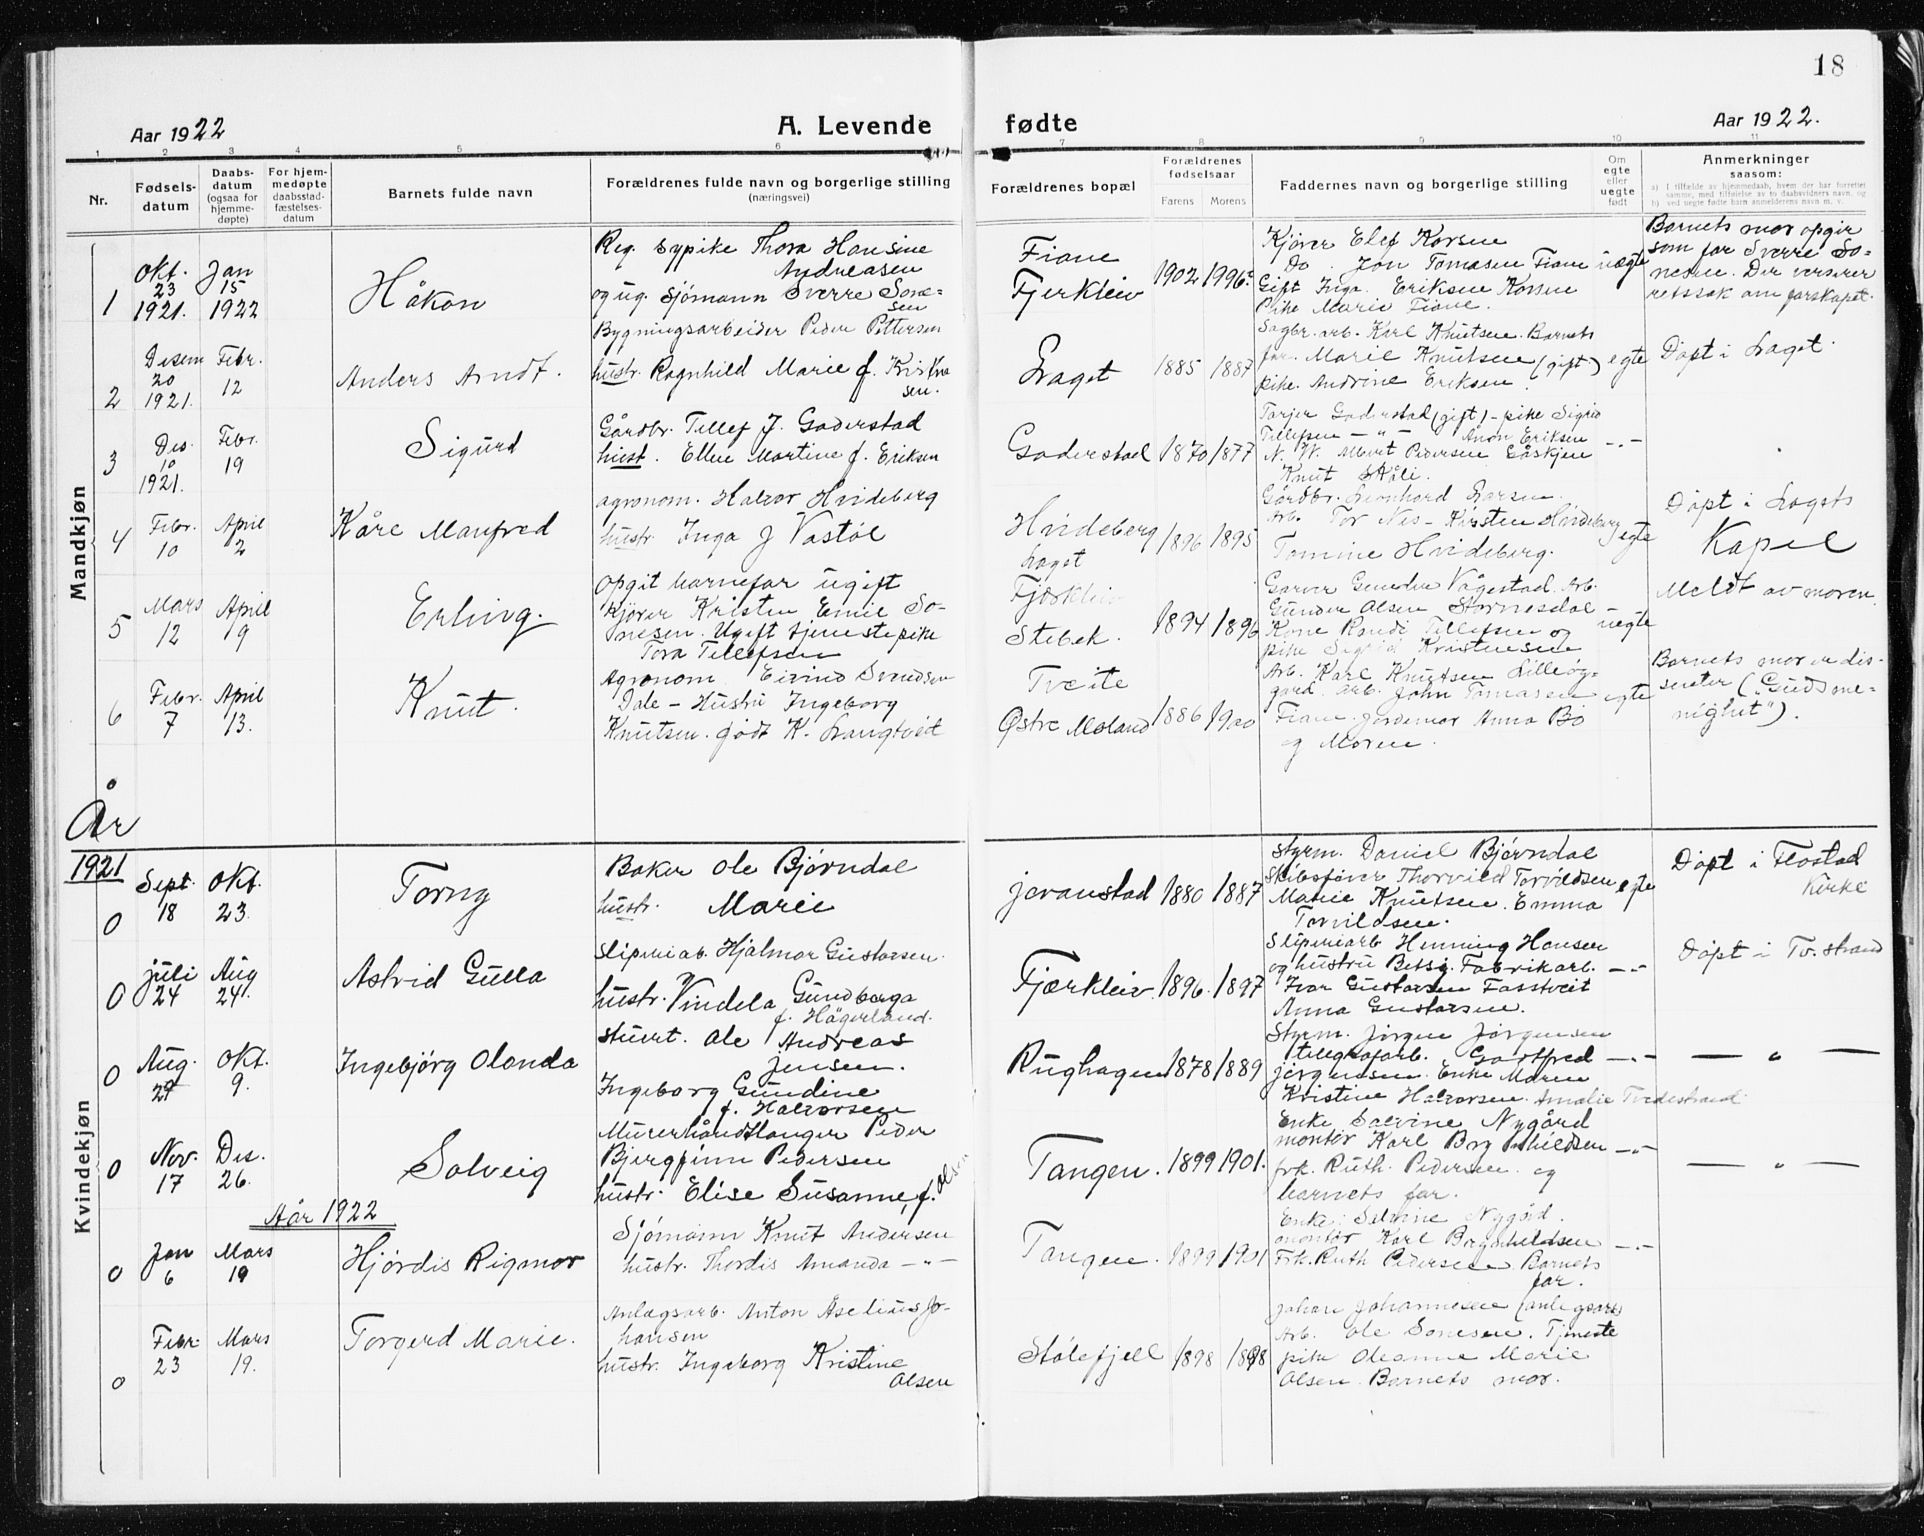 18
Aar 1922
A. Levende fødte
Aar 1922.
1 2 3 4 5 6 7 8 9 10 11
Nr.
Fødsels-
datum
Daabs-
datum
(ogsaa for
hjemme-
døpte)
For hjem-
medøpte
daabsstad-
fæstelses-
datum
Barnets fulde navn
Forældrenes fulde navn og borgerlige stilling
(næringsvei)
Forældrenes bopæl
Forældrenes
fødselsaar
Farens Morens
Faddernes navn og borgerlige stilling
Om
egte
eller
uegte
født
Anmerkninger
saasom:
a) I tilfælde av hjemmedaab, hvem der har forrettet
samme, med tilføielse av to daabsvidners navn, og
b) ved uegte fødte barn anmelderens navn m. v.
Mandkjøn
1
Okt.
23
1921.
Jan
15
1922
Håkon
Reg. sypike Thora Hansine
Andreasen
og ug. Sjömann Sverre Søne-
sen
Fiane
Fjerkleiv
1902 1996?
Kjører Elef Korsen
Do. Jon Tomasen Fiane
Gift Inga Eriksen Korsen
Pike Marie Fiane.
uægte
Barnets mor opgir
som far Sverre So-
nesen. Der verserer
retssak om farskapet.
2
Desem
20
1921.
Febr.
12
Anders Arndt.
Bygningsarbeider Peder Pettersen
hustr. Ragnhild Marie f. Kristian
sen.
Laget
1885 1887
Sagbr. arb. Karl Knutsen. Barnets
far. Marie Knutsen (gift)
pike. Andrine Eriksen.
egte
Døpt i Laget.
3
Des
10
1921.
Febr.
19
Sigurd
Gårdbr. Tellef J. Goderstad
hust. Ellen Martine f. Eriksen
Goderstad
1870 1877
Tarjer Goderstad (gift) - pike Sigrid
Tellefsen - " - Anon Eriksen
N. W. Albert Pedersen Gåskjen
Knut Skåli.
- " -
4
Febr.
10
April
2
Kåre Manfred
agronom. Halvor Hvideberg
hustr. Inga J Vastöl
Hvideberg
Laget
1896 1895
Gårdbr. Leonhard Larsen.
Arb. Tor Nes - Kirsten Hvideberg
Tomine Hvideberg.
egte
Døpt i Lagets
Kapel
5
Mars
12
April
9
Erling.
Opgit barnefar ugift
kjører Kristen Emil So-
nesen. Ugift tjenestepike
Tora Tellefsen
Fjerkleiv
Stebek.
1894 1896
Garver Gunder Vågestad. Arb.
Gunder Olsen Stornesdal
Kone Randi Tellefsen og
pike Sigrid Kristensen
uegte
Meldt av moren.
6
Febr.
7
April
13.
Knut.
Agronom Eivind Svendsen
Dale - Hustru Ingeborg
Knutsen. født K. Langtvèt
Tveite
Østre Moland
1886 1900
Arb. Karl Knutsen Lilleög-
gard. arb. John Tomasen
Fiane. Jordemor Anna Bö
og Moren.
egte
Barnets mor er dis-
senter ("Guds me-
nighet").
År
1921
Kvindekjøn
0
Sept.
18
Okt.
23.
Torny
Baker Ole Bjørndal
hustr. Marie
jevanstad
1880 1887
Styrm. Daniel Bjørndal
Skibsfører Thorvild Torvildsen
Marie Knutsen. Emma
Torvildsen.
egte
Døpt i Flostad
Kirke
0
juli
24
Aug
24.
Astrid Gulla
Sliperiab. Hjalmar Gustavsen.
hustr. Vindela Gundborga
f. Hägerland.
Fjærkleiv
1896. 1897
Sliperiarb Henning Hansen
og hustru Betsy. Fabrikarb.
Ivar Gustavsen Fasstveit
Anna Gustavsen.
- " -
Døpt i Tv.strand
0
Aug.
29
Okt.
9.
Ingebjørg Olonda
Stuert. Ole Andreas
Jensen.
Ingeborg Gundine
f. Halvorsen
Rughagen
1878 1889
Styrm. Jørgen Jørgensen
telegrafarb. Godtfred
jørgensen. Enke Maren
Kristine Halvorsen. Amalie Tvedestrand.
- " -
— " —
0
Nov.
17
Des.
26.
Solveig
Murerhåndlanger Peder
Bjergfinn Pedersen
hustr. Elise Susanne, f. Olsen
Tangen.
1899 1901.
Enke Salvine Nygård
montör Karl Brynhildsen
frk. Ruth Pedersen. og
barnets far.
- " -
— " —
Aår 1922
0
Jan
6
Mars
19
Hjördis Rigmor
Sjömann Knut Andersen
hustr. Thordis Amanda - " -
Tangen.
1899 1901
Enke Salvine Nygård.
montör Karl Brynhildsen
Frk. Ruth Pedersen. Barnets
far.
- " -
0
Febr
23
Mars
19.
Torgerd Marie.
Anlægsarb. Anton Aselius Jo-
hansen
hustr. Ingeborg Kristine
Olsen
Stölefjell
1898 1898
Johan Johannesen (anlegsarb)
Arb. Ole Sonesen. Tjeneste
pike Oleanne Marie
Olsen. Barnets mor.